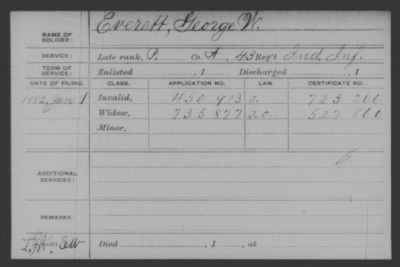 NAME OF SOLDIER: Everett, George W.
SERVICE: Late rank, P. Co. A, 43 Reg't Ind. Inf.
TERM OF SERVICE: Enlisted , 1 Discharged , 1
DATE OF FILING. CLASS. APPLICATION NO. LAW. CERTIFICATE NO.
June 1 Invalid, 450 913 J.
Widow, 735 877 J.O.
Minor,
ADDITIONAL SERVICES:
REMARKS:
Died , 1 , at